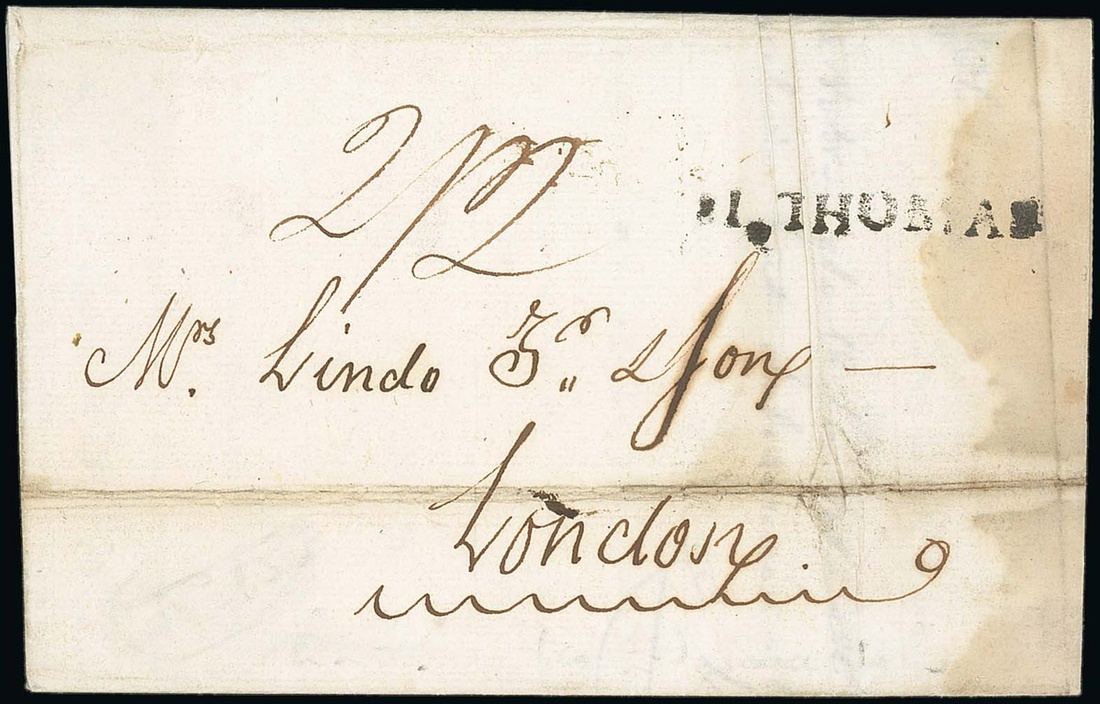 2/2
St. THOMAS
Mrs. Lindo & Sons —
London